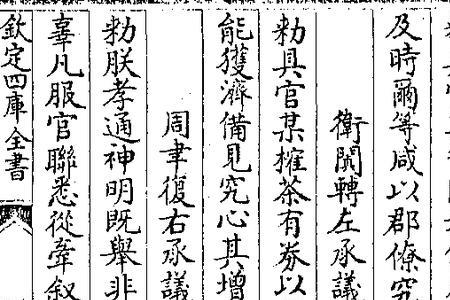 及時爾等咸以郡僚究
衛闐轉左承議
勑具官某搉茶有劵以
能獲濟備見究心其增
周聿復右承議
勑朕孝通神明既舉非
辜凡服官聯悉從牽叙
欽定四庫全書